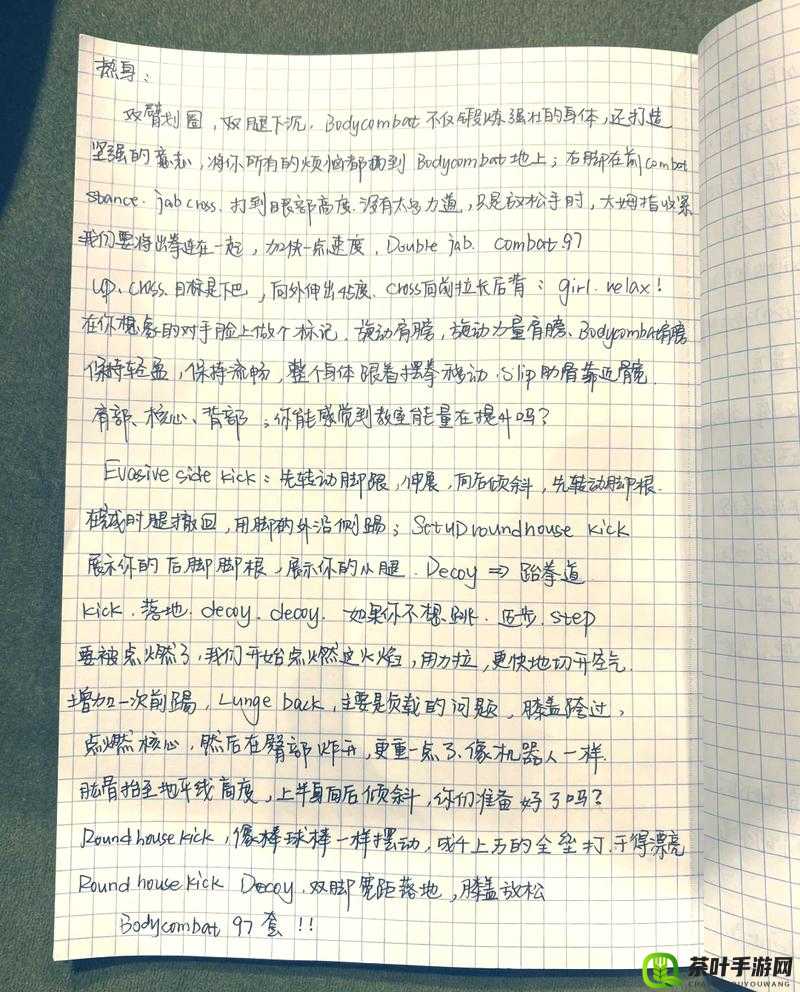 热身：
双臂划圈，双腿下沉．Bodycombat 不仅锻炼强壮的身体，还打造
坚强的意志，将你所有的烦恼都 到 Bodycombat 地上；右脚在前 combat
stance．jab cross．打到眼部高度．没有太多力道，只是放松手时，大姆指收紧
我们要将出拳连在一起，加快一点速度．Double jab． combat 97
up、cross．目标是下巴，向外伸出45度．Cross向前拉长后背；girl．relax！
在你想象的对手脸上做个标记．旋动肩膀，旋动力量肩膀、Bodycombat肩膀
保持轻盈，保持流畅，整个身体跟着摆拳移动．Slip 肋骨靠近髋．
肩部、核心、背部；你能感觉到教室能量在提升吗？
Evasive side kick：先转动脚跟，伸展，向后倾斜，先转动脚根．
在 时腿撤回，用脚的外沿侧踢；Setup roundhouse kick
展示你的后脚脚根，展示你的小腿．Decoy ⇒ 跆拳道
kick．落地．decoy．decoy．如果你不想跳．迈步．step
要被点燃了，我们开始点燃这火焰，用力拉，更快地切开空气．
增加一次前踢，Lunge back，主要是负载的问题，膝盖 过，
点燃核心，然后在臀部炸开，更重一点了．像机器人一样．
肱骨抬至地平线高度，上半身向后倾斜，你们准备好了吗？
Roundhouse kick，像棒球棒一样摆动，成千上万的全垒打．干得漂亮
Roundhouse kick Decoy．双脚宽距落地，膝盖放松
Bodycombat 97 套！！
茶叶手游网